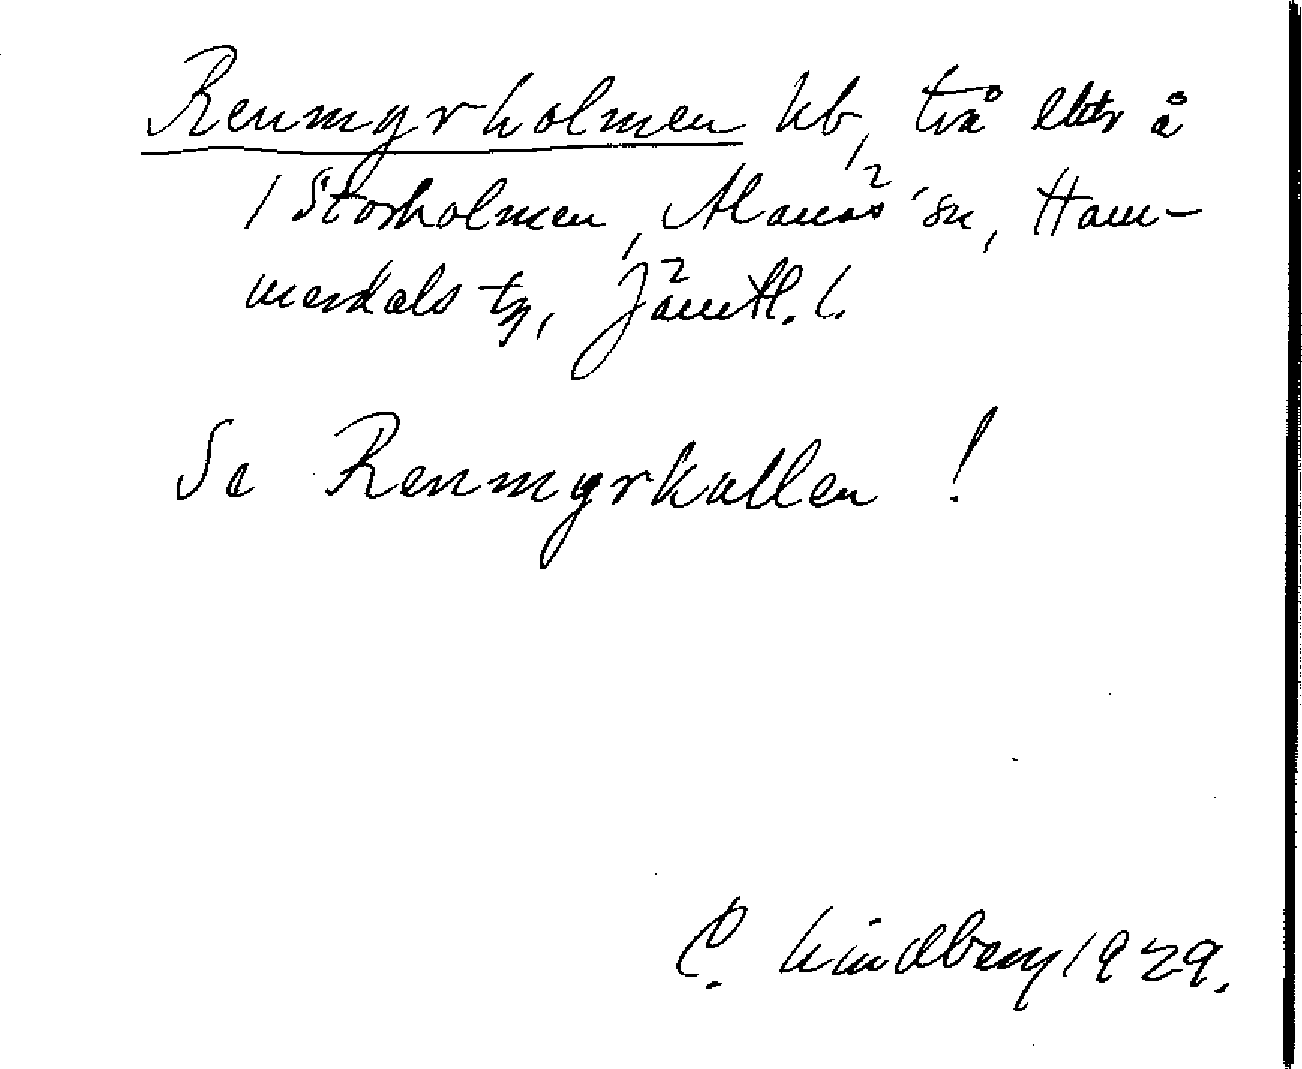 Renmyrholmen hb, två lttr å
/ Storholmen, Alanäs sn, Ham-
merdals tg, Jämtl. l.
Se Renmyrkallen !
C. Lindberg 1929.